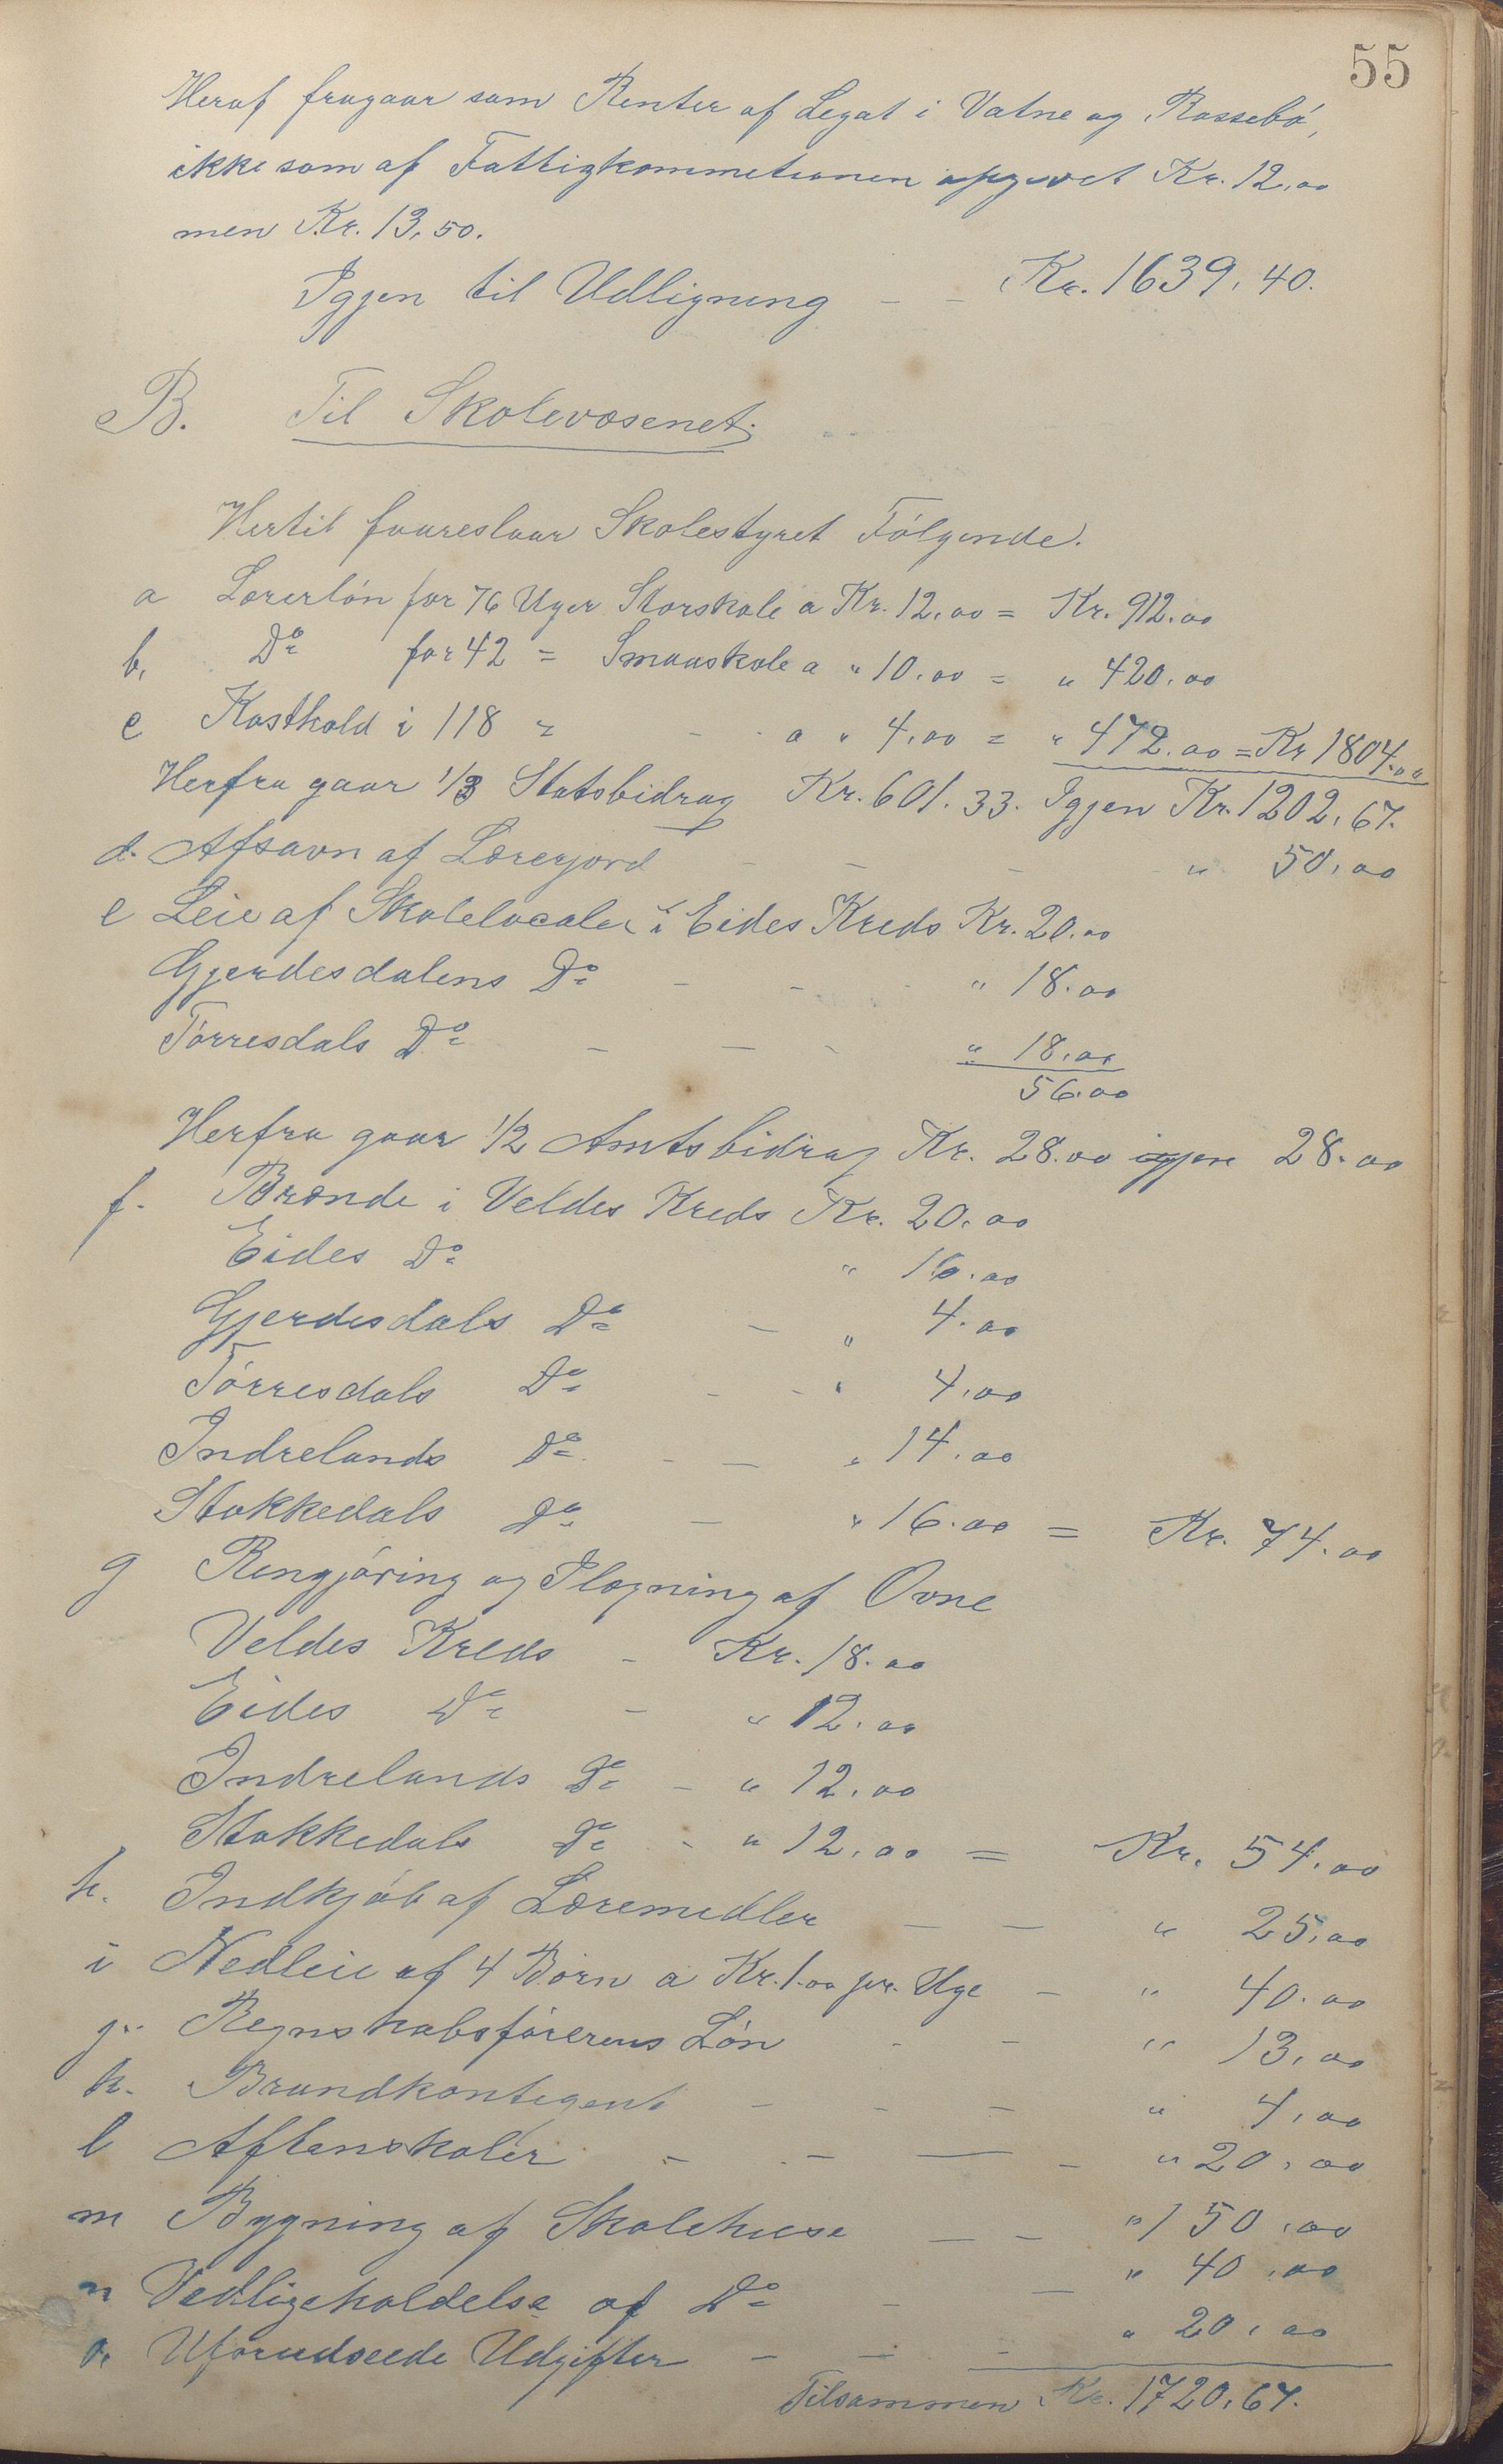 55
Heraf fragaar som Renter af Legat i Vatne og Rossebö,
ikke som af Fattigkommetionen opgivet Kr. 12,00
men Kr. 13,50.
Igjen til Udligning - - Kr. 1639,40.
B. Til Skolevæsenet;
Hertil foureslaar Skolestyret Fölgende.
a Lærerlön for 76 Uger Storskole a Kr. 12,00 = Kr. 912.00
b, Do for 42 = Smaaskole a " 10,00 = " 420,00
c Kosthold i 118 = - - a " 4,00 = " 472.00 = Kr 1804,00
Herfra gaar 1/3 Statsbidrag Kr. 601.33. Igjen Kr. 1202,67.
d. Afsavn af Lærerjord - - - " 50,00
e Leie af Skolelocaler i Eides Kreds Kr. 20.00
Gjerdesdalens Do - - - " 18.00
Törresdals Do - - - " 18,00
56.00
Herfra gaar 1/2 Amtsbidrag Kr. 28.00 igjen 28.00
f. Brænde i Veldes Kreds Kr. 20,00
Eides Do " 16.00
Gjerdesdals Do - " 4.00
Törresdals Do - - " 4,00
Indrelands Do - - " 14.00
Stokkedals Do - " 16.00 = Kr. 74.00
g Rengjöring og Plægning af Ovne
Veldes Kreds - Kr. 18.00
Eides Do - " 12.00
Indrelands Do - " 12,00
Stokkedals Do - " 12,00 = Kr. 54,00
h. Indkjöb af Læremidler - - " 25,00
i Nedleie af 4 Börn a Kr. 1.00 pr. Uge - " 40.00
j. Regnskabsförerens Lön - - " 13,00
k. Brandkontigent - - - " 4,00
l Aftenskoler - - - - " 20,00
m Bygning af Skolehuse - - " 150,00
n Vedligeholdelse af Do - - " 40,00
o. Uforudseede Udgifter - - - " 20,00
Tilsammen Kr. 1720,67.